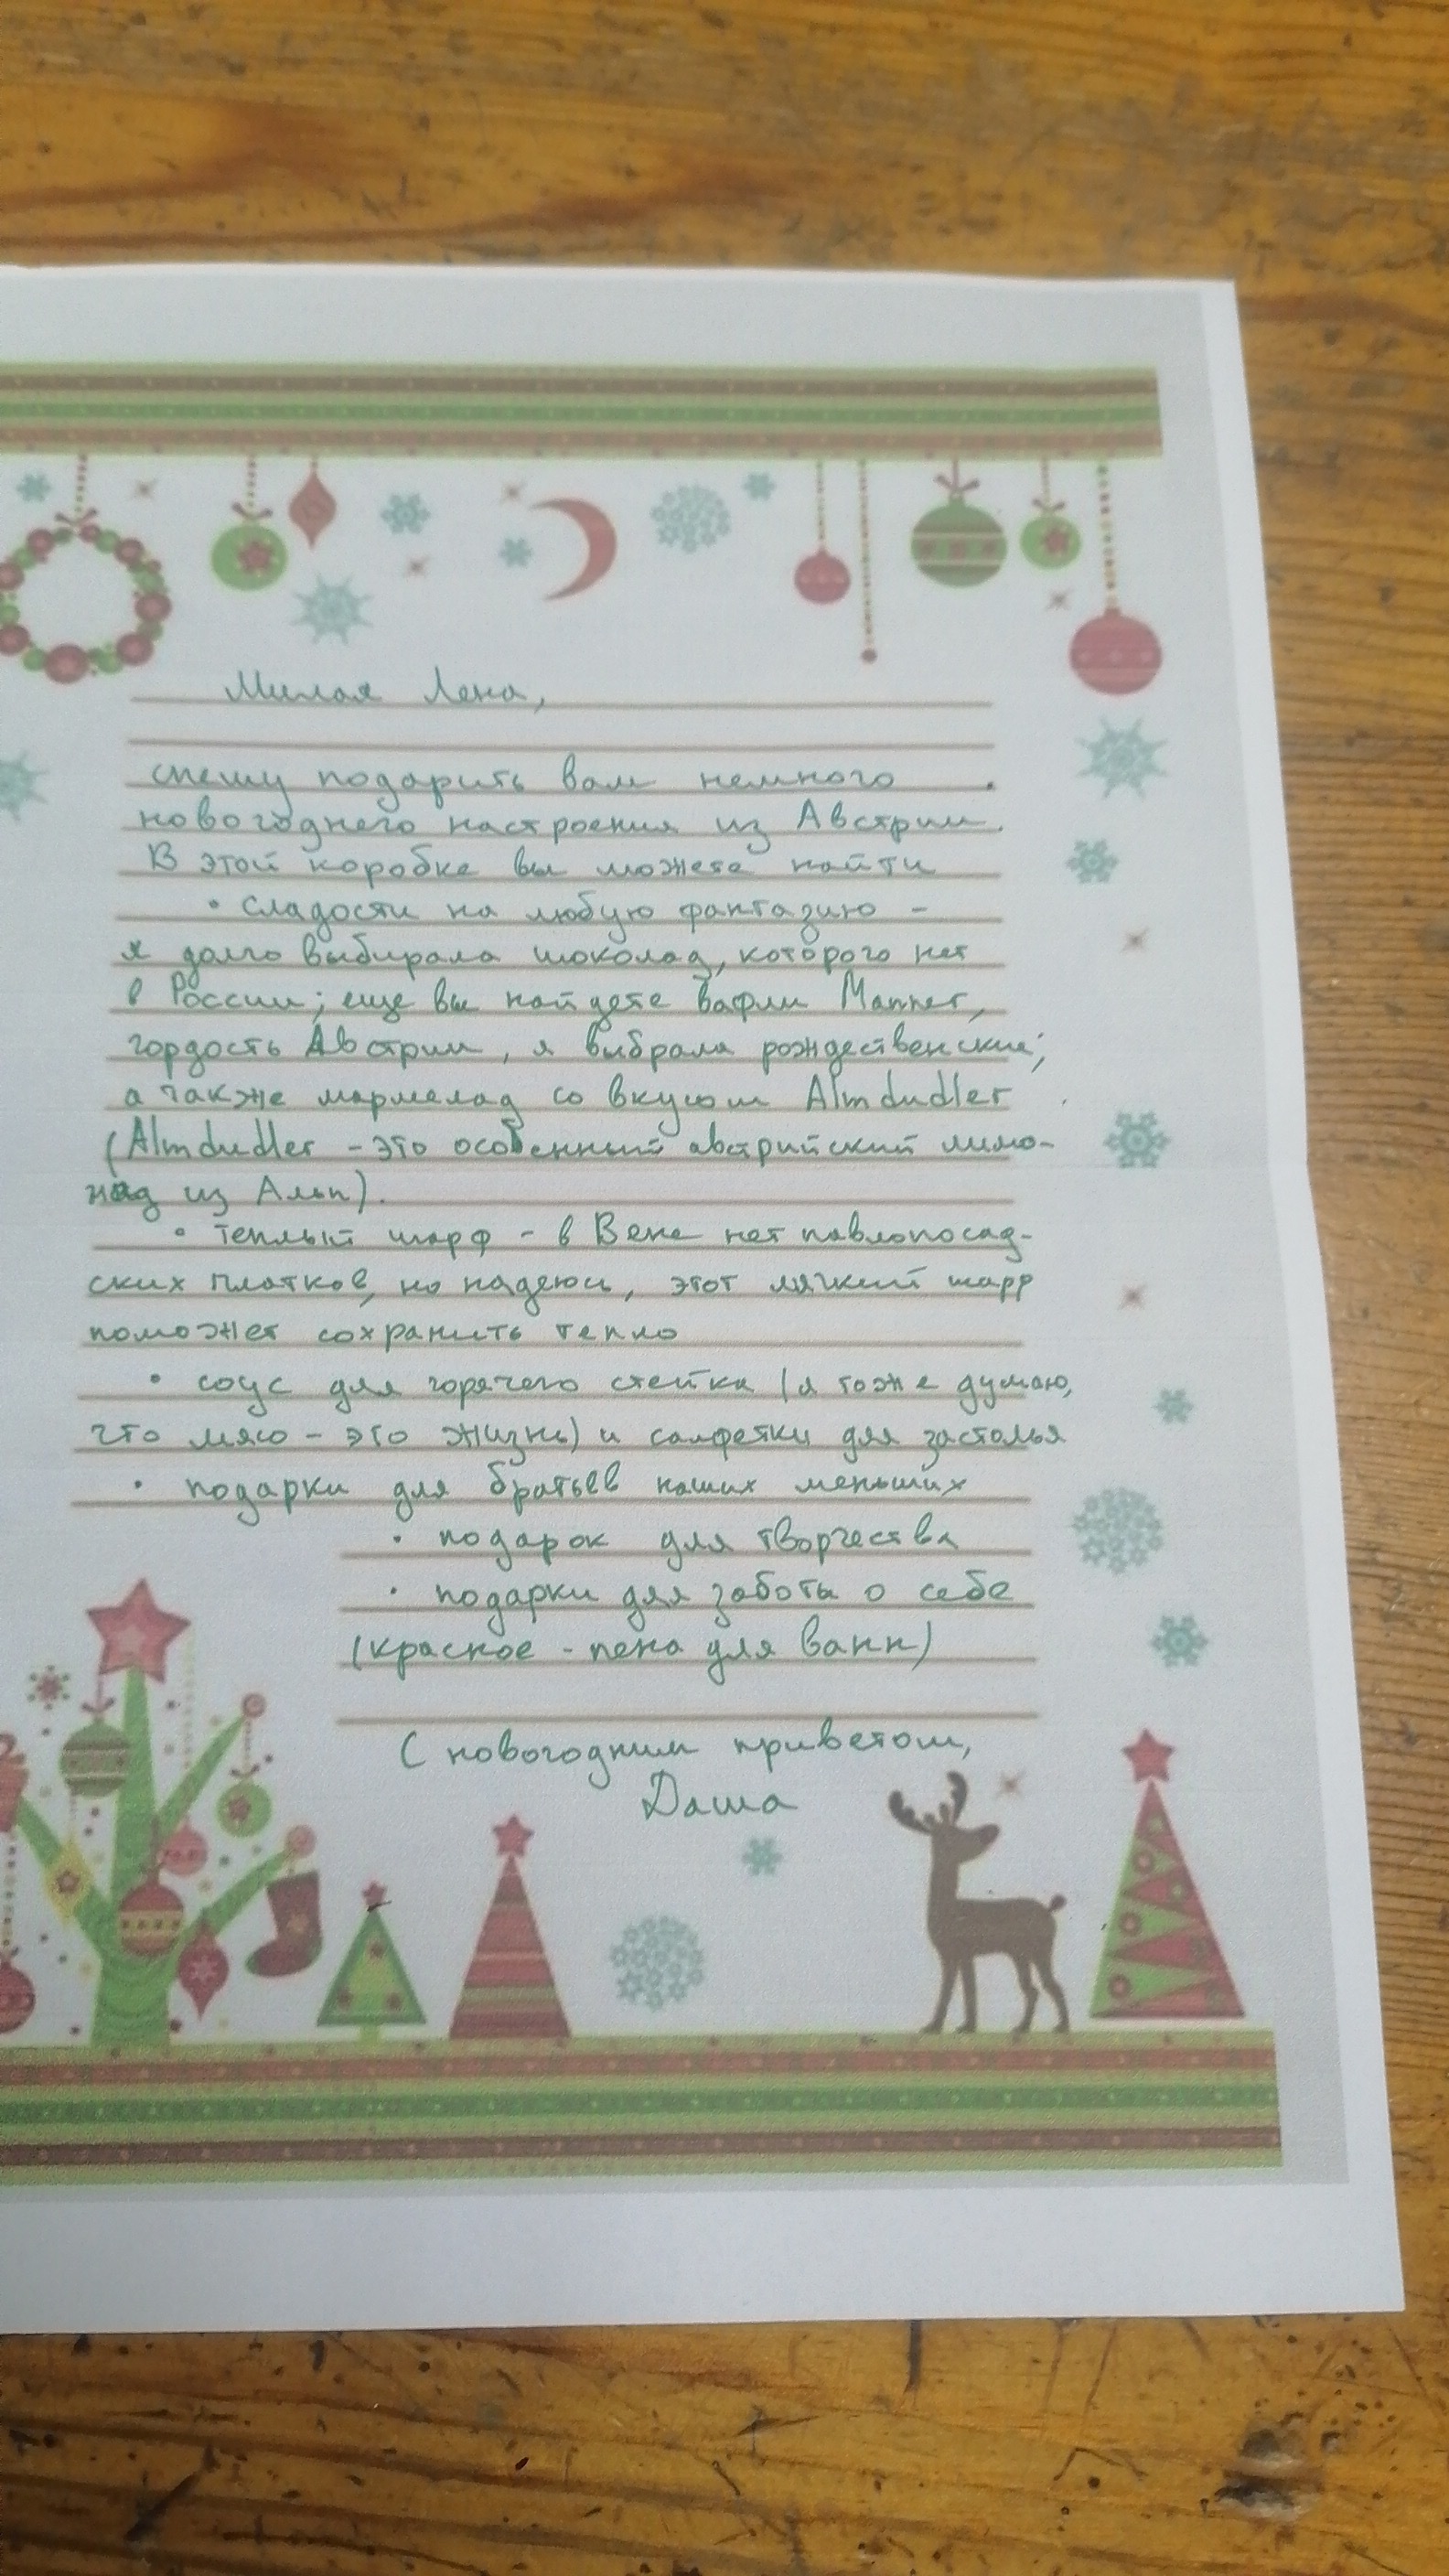 Милая Лена,
спешу подарить вам немного
новогоднего настроения из Австрии.
В этой коробке вы можете найти
• сладости на любую фантазию –
я долго выбирала шоколад, которого нет
в России; еще вы найдете вафли Manner,
гордость Австрии, я выбрала рождественские;
а также мармелад со вкусом Almdudler
(Almdudler – это особенный австрийский лимо-
над из Альп).
• теплый шарф – в Вене нет павлопосад-
ских платков, но надеюсь, этот мягкий шарф
поможет сохранить тепло
• соус для горячего стейка (я тоже думаю,
что мясо – это жизнь) и салфетки для застолья
• подарки для братьев наших меньших
• подарок для творчества
• подарки для заботы о себе
(красное - пена для ванн)
С новогодним приветом,
Даша